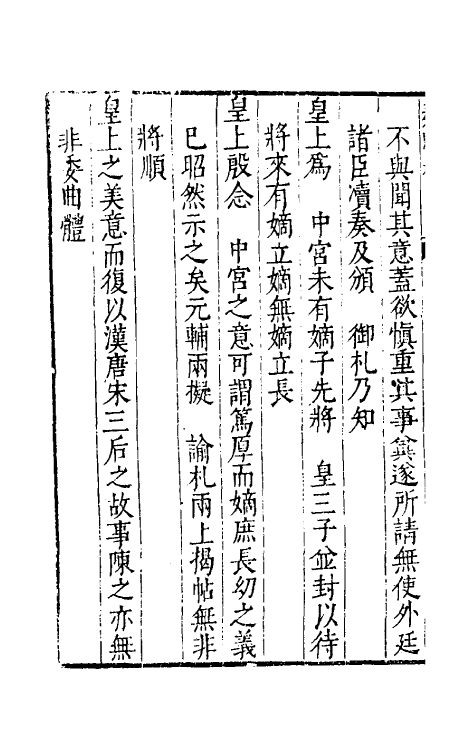 不與聞其意蓋欲慎重其事兾遂所請無使外廷
諸臣瀆奏及頒　御札乃知
皇上爲　中宮未有嫡子先將　皇三子並封以待
將來有嫡立嫡無嫡立長
皇上殷念　中宮之意可謂篤厚而嫡庶長幼之義
已昭然示之矣元輔兩擬　諭札兩上揭帖無非
將順
皇上之美意而復以漢唐宋三后之故事陳之亦無
非委曲體